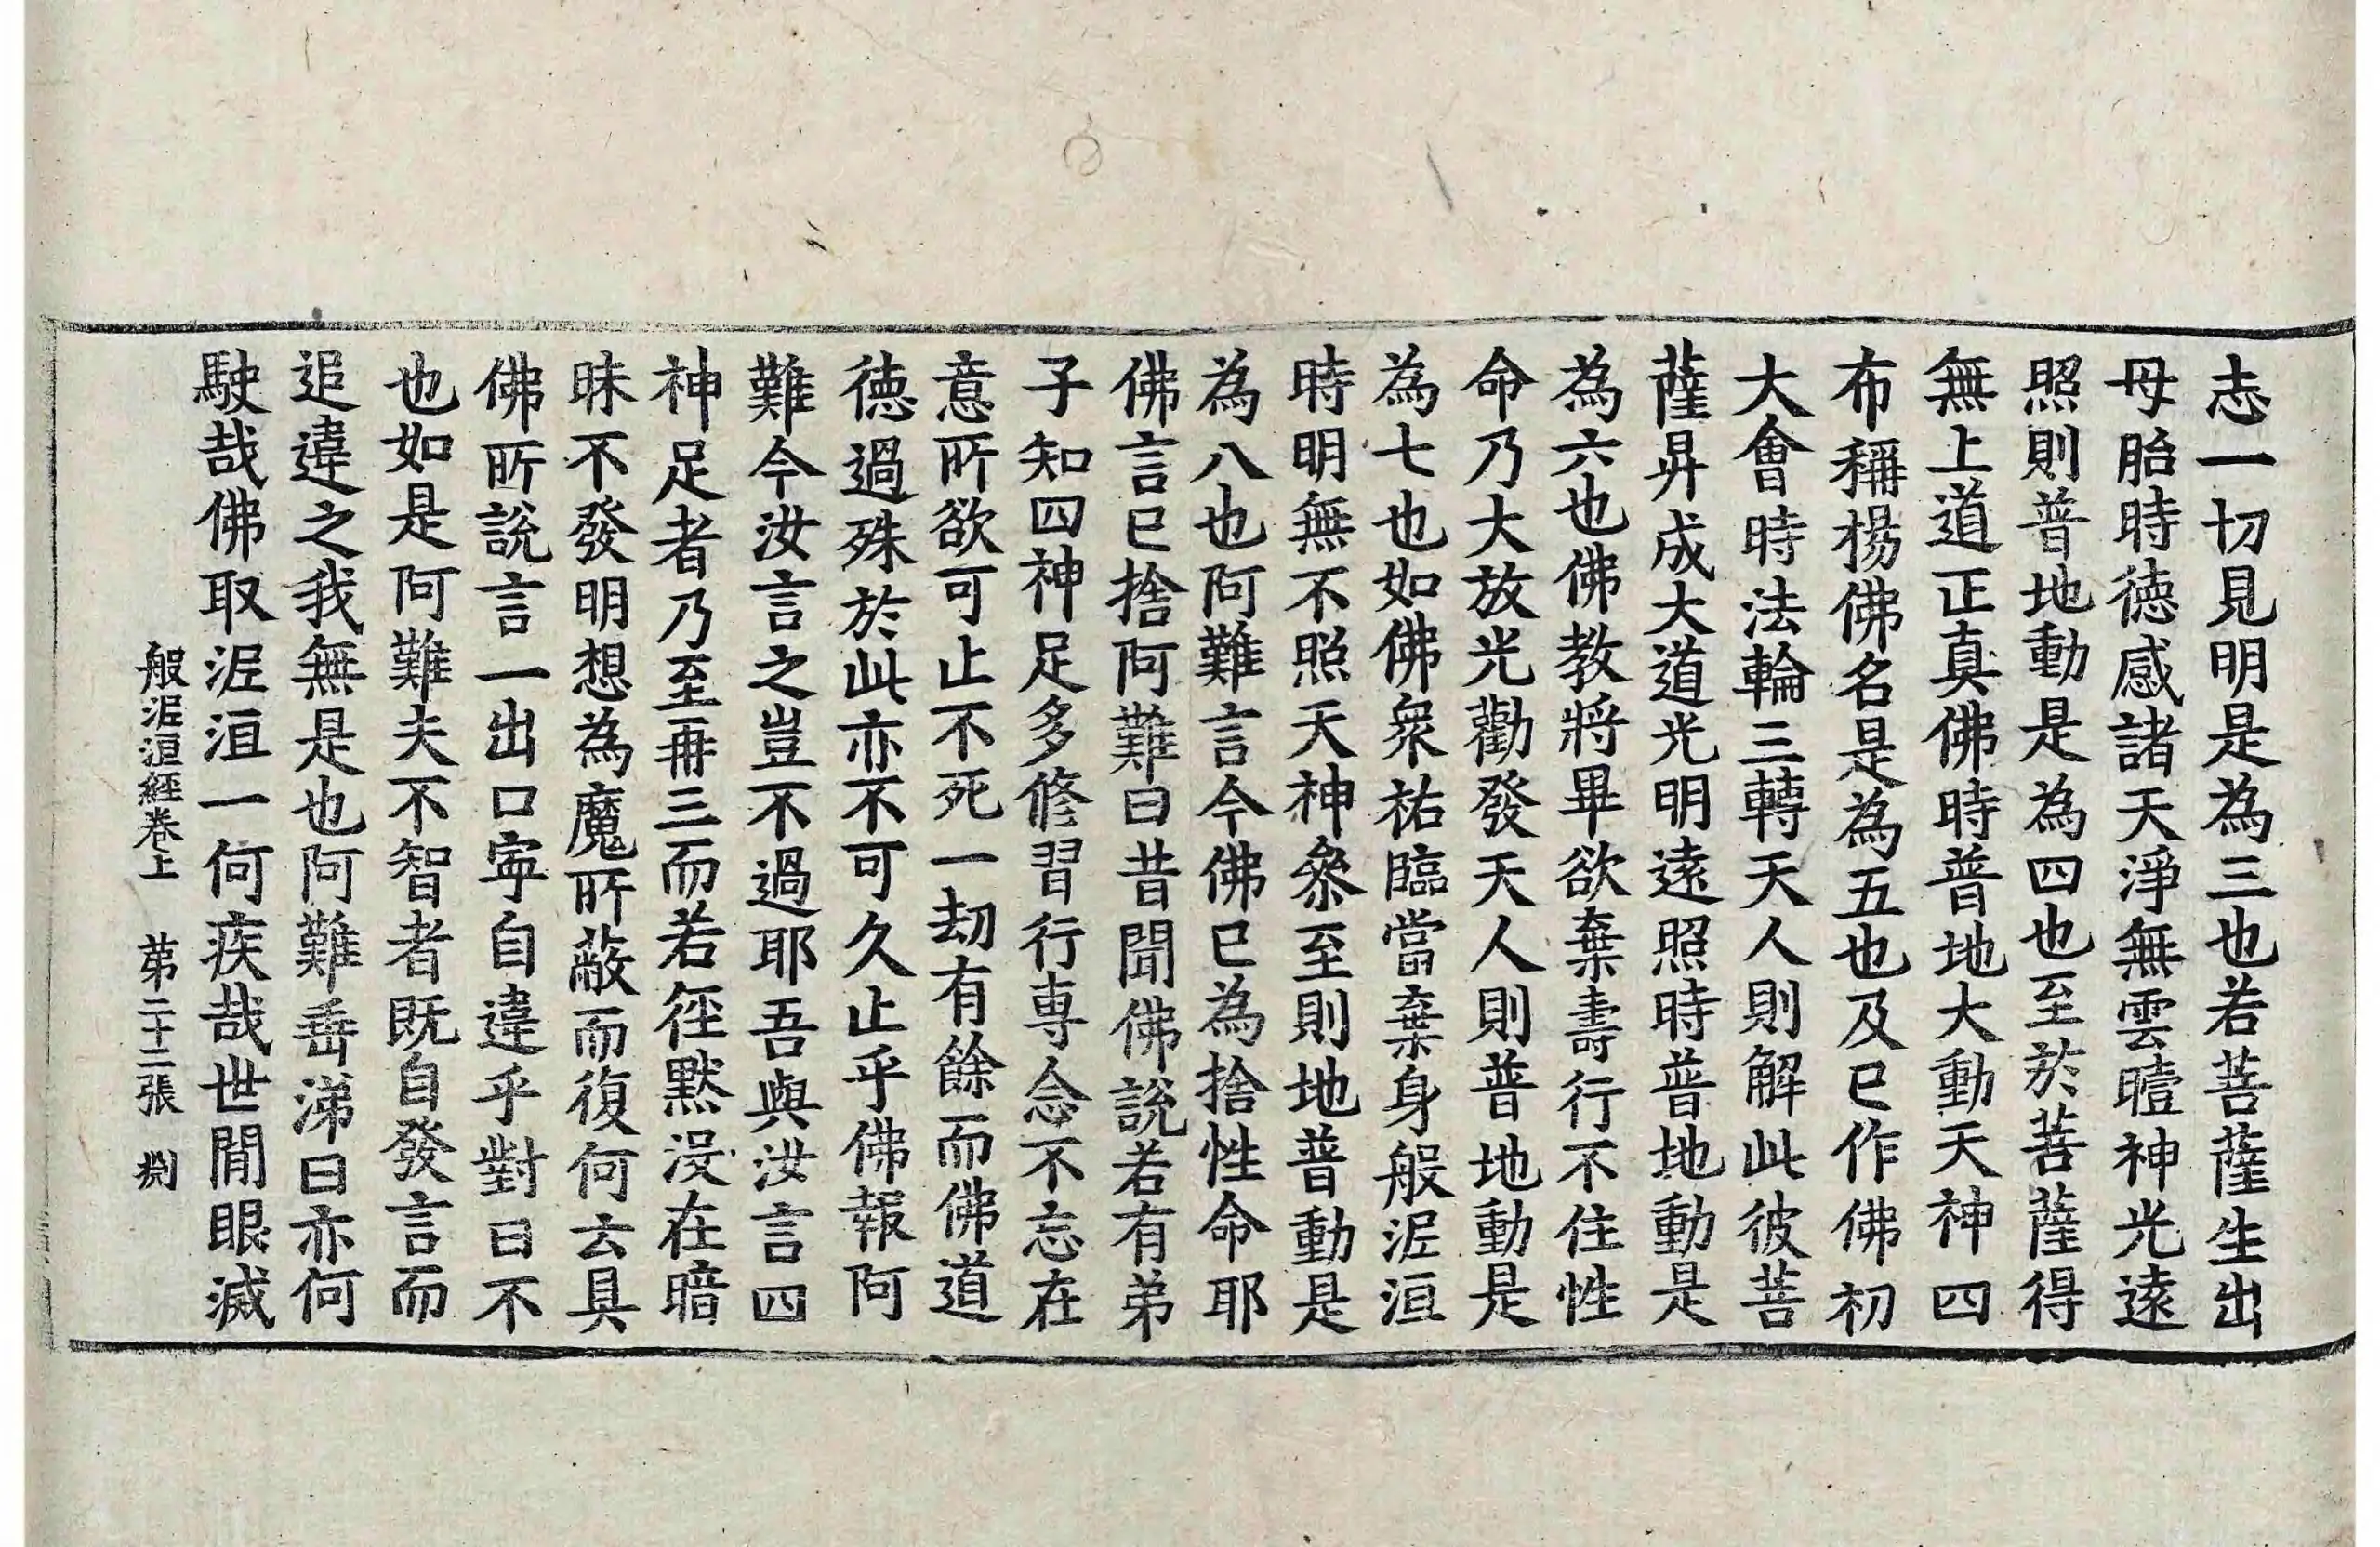 志一切見明是為三也若菩薩生出
母胎時德感諸天淨無雲曀神光遠
照則普地動是為四也至於菩薩得
無上道正真佛時普地大動天神四
布稱揚佛名是為五也及已作佛初
大會時法輪三轉天人則解此彼菩
薩昇成大道光明遠照時普地動是
為六也佛教將畢欲棄壽行不住性
命乃大放光勸發天人則普地動是
為七也如佛衆祐臨當棄身般泥洹
時明無不照天神叅至則地普動是
為八也阿難言今佛已為捨性命耶
佛言已捨阿難曰昔聞佛說若有弟
子知四神足多修習行専念不忘在
意所欲可止不死一劫有餘而佛道
德過殊於此亦不可久止乎佛報阿
難今汝言之豈不過耶吾與汝言四
神足者乃至再三而若徑默沒在暗
昧不發明想為魔所蔽而復何云具
佛所說言一出口寧自違乎對曰不
也如是阿難夫不智者既自發言而
追違之我無是也阿難垂涕曰亦何
駛哉佛取泥洹一何疾哉世間眼滅
般泥洹經卷上 第二十二張 𠛴